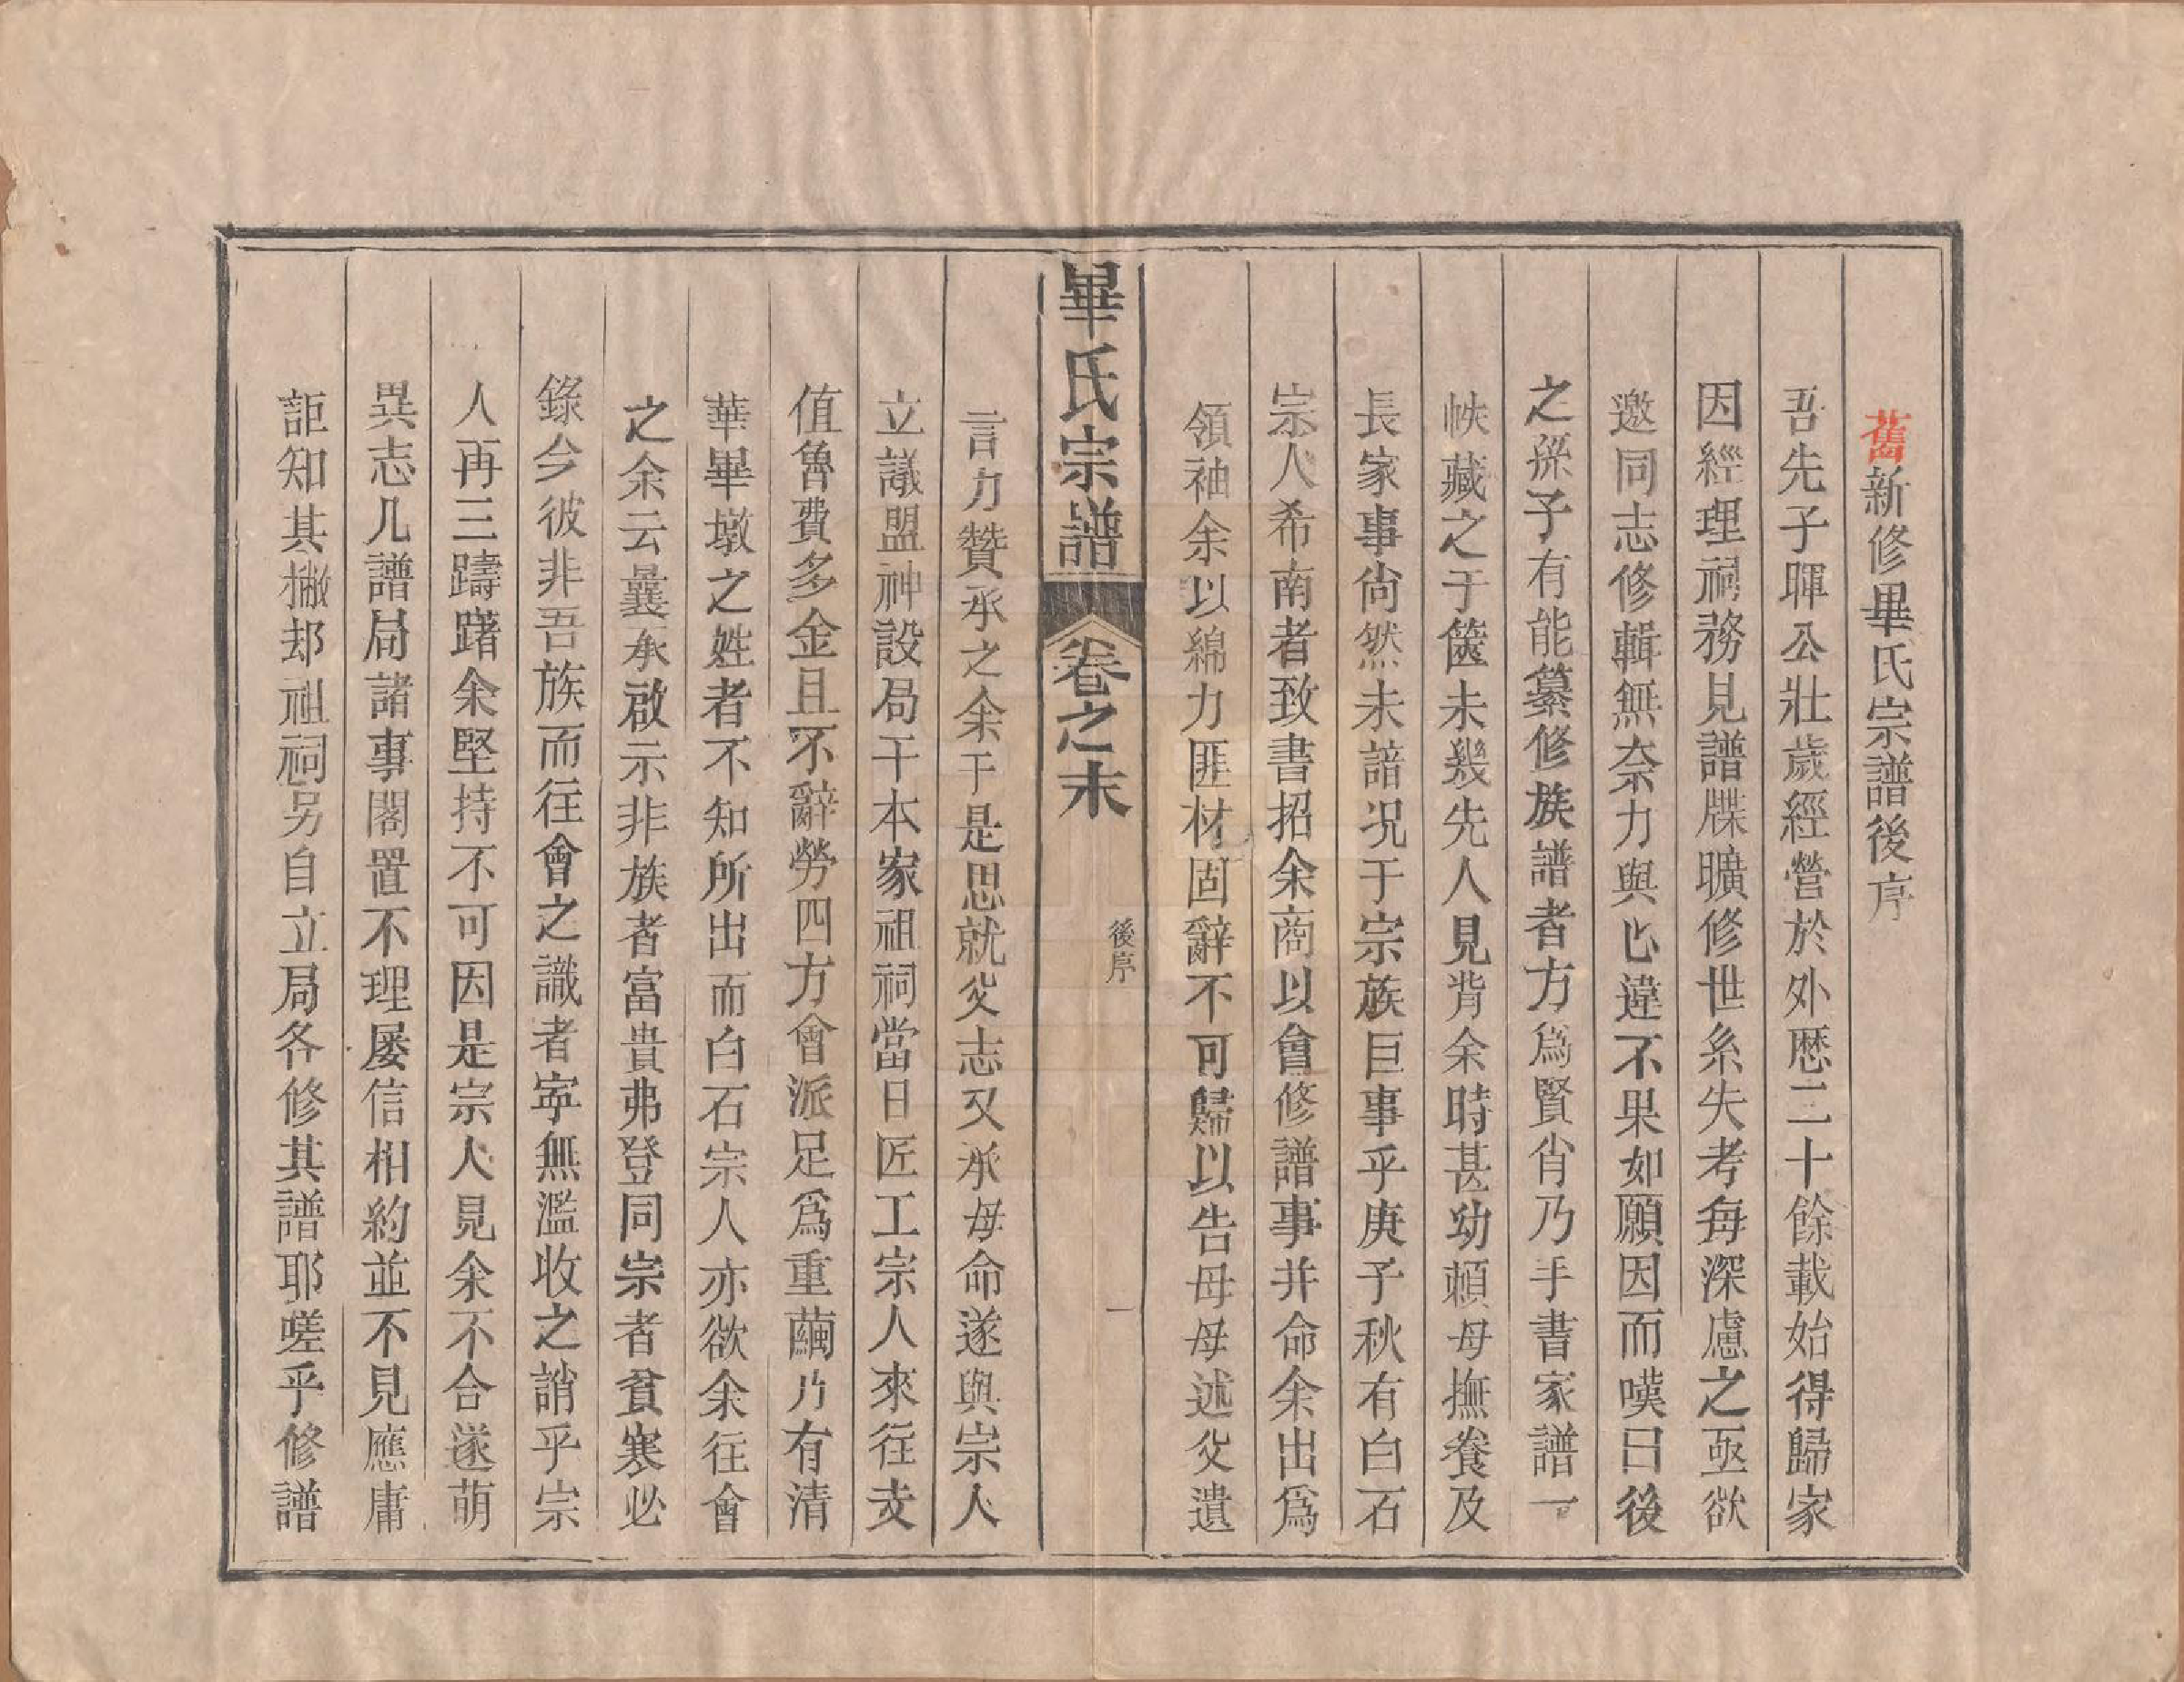 舊新修畢氏宗譜後序
吾先子暉公壯歲經營於外歷二十餘載始得歸家
因經理祠務見譜牒曠修世系失考每深慮之亟欲
邀同志修輯無奈力與心違不果如願因而嘆曰後
之孫子有能纂修族譜者方爲賢肖乃手書家譜一
帙藏之于篋未幾先人見背余時甚幼賴母撫養及
長家事尚然未諳況于宗族巨事乎庚子秋有白石
宗人希南者致書招余商以會修譜事并命余出爲
領袖余以綿力匪材固辭不可歸以告母母述父遺
畢氏宗譜 卷之末 後序 一
言力贊承之余于是思就父志又承母命遂與宗人
立議盟神設局于本家祖祠當日匠工宗人來往支
值魯費多金且不辭勞四方會派足爲重繭乃有清
華畢墩之姓者不知所出而白石宗人亦欲余往會
之余云曩承啟示非族者富貴弗登同宗者貧寒必
錄今彼非吾族而往會之識者寧無濫收之誚乎宗
人再三躊躇余堅持不可因是宗人見余不合遂萌
異志凡譜局諸事閣置不理屡信相約並不見應庸
詎知其撇却祖祠另自立局各修其譜耶嗟乎修譜